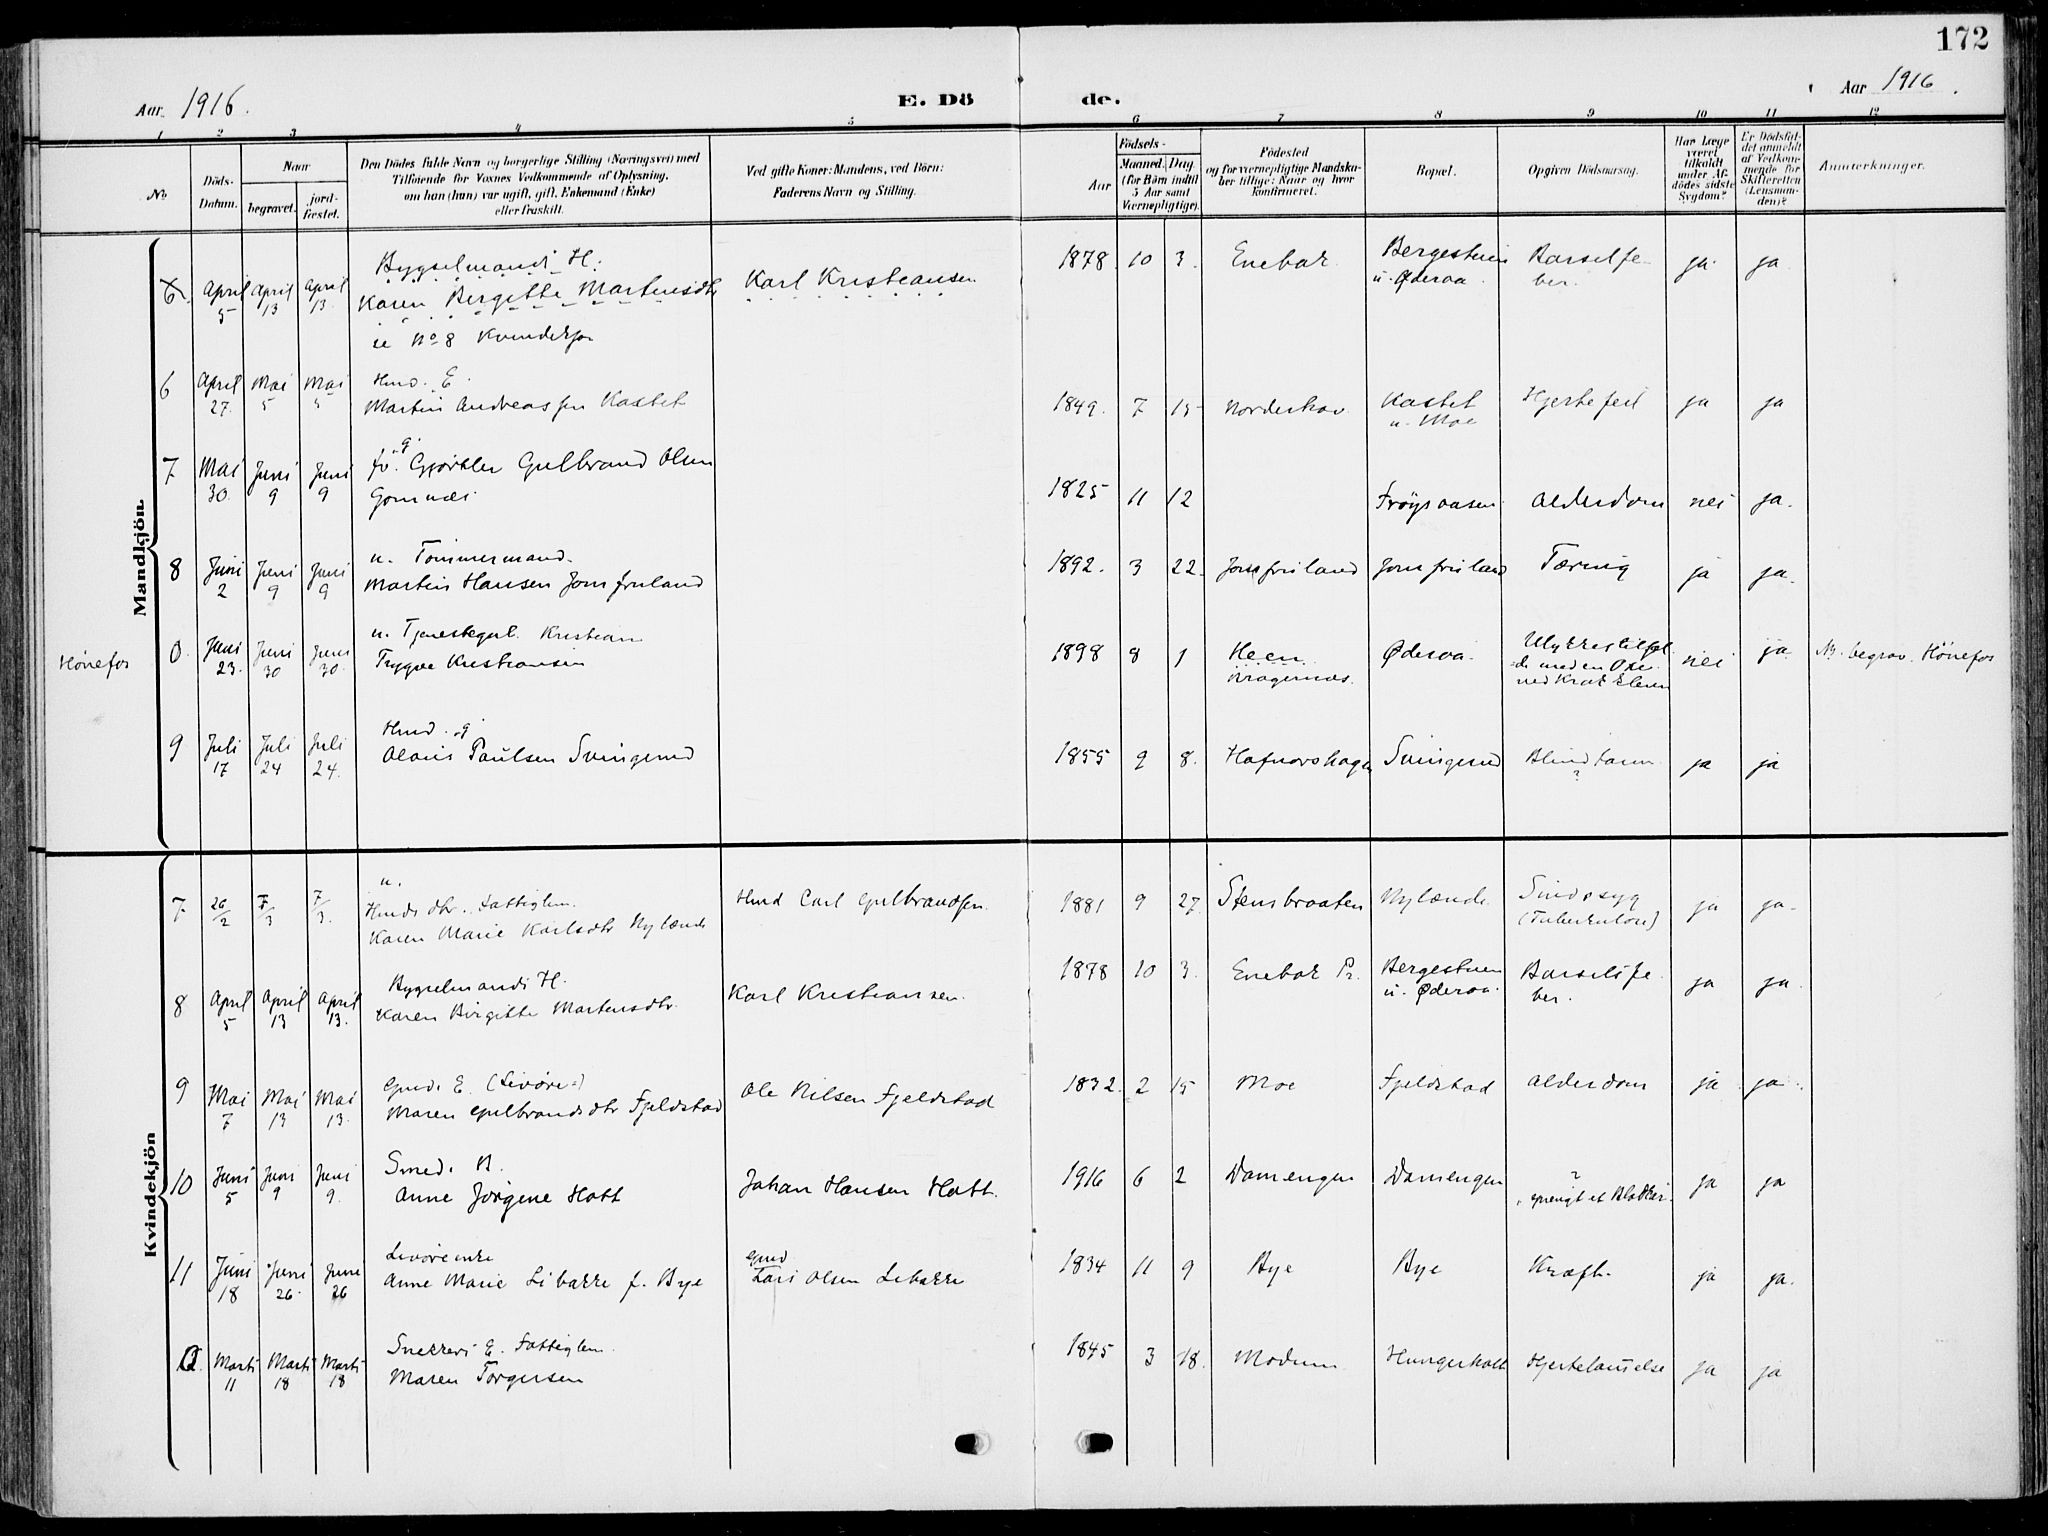 172
Aar 1916.
E. Döde.
Aar 1916.
1 2 3 4 5 6 7 8 9 10 11 12
No.
Döds-Datum.
Naar
begravet.
jordfæstet.
Den Dödes fulde Navn og borgerlige Stilling (Næringsvei) med
Tilföiende for Voxnes Vedkommende af Oplysning,
om han (hun) var ugift, gift, Enkemand (Enke)
eller fraskilt.
Ved gifte Koner: Mandens, ved Börn:
Faderens Navn og Stilling.
Aar
Födsels-
Maaned. Dag
(for Börn indtil
5 Aar samt
Værnepligtige).
Födested
og for værnepligtige Mandskaber tillige: Naar og hvor
konfirmeret.
Bopæl.
Opgiven Dödsaarsag.
Har Læge
været
tilkaldt
under Afdödes sidste
Sygdom?
Er Dödsfaldet anmeldt
af Vedkommende for
Skifteretten
(Lensmanden)?
Anmærkninger.
Mandkjön.
6. April 5 April 13 April 13 Bygselmands H. Karen Bergitte Martinsdtr Karl Kristiansen 1878 10 3. Enebak Bergestuen u. Øderaa Barselfeber. ja ja
se No 8 Kvindekjøn
6 April 27. Mai 5 Mai 5 Hmd. E. Martin Andreassen Kastet 1849. 7 15 Norderhov Kastet u. Moe Hjertefeil ja ja
7 Mai 30. Juni 9 Juni 9 g. fv. Gjørtler Gulbrand Olsen Gomnæs 1825 11 12 Frøysaasen Alderdom nei ja.
8 Juni 2 Juni 9 Juni 9 u. Tømmermand. Martin Hansen Jomfruland 1892. 3 22. Jomfruland Jomfruland Tæring ja ja.
Hönefos 0. Juni 23. Juni 30 Juni 30. u. Tjenestegut. Kristian Trygve Kristiansen 1898 8 1 Heen Kragernæs. Øderaa. nei ja begrav. Hönefos
9 Juli 17 Juli 24 Juli 24. Hmd. g Olaus Paulsen Svingerud 1855 9 8. Hafnorshagen Svingerud Blindtarm ? ja ja
Kvindekjön
7 26/2 7/3 7/3. u. Hmds dtr. Fattiglem. Karen Marie Karlsdtr Nylænde Hmd Carl Gulbrandsen 1881 9 27. Stensbraaten Nylænde Sindssyg (Tuberkulose) ja ja
8 April 5 April 13 April 13. Bygselmands H. Karen Birgitte Martinsdtr. Karl Kristiansen. 1878 10 3. Enebak Pr. Bergestuen u. Øderaa. Barselsfeber. ja ja.
9 Mai 7 Mai 13 Mai 13. Gmds E. (Livøre) Maren Gulbrandsdtr Fjeldstad Ole Nilsen Fjeldstad 1832. 2 15 Moe Fjeldstad Alderdom ja ja
10 Juni 5 Juni 9 Juni 9. Smeds B. Anne Jørgine Hatt Johan Hansen Hatt. 1916 6 2 Damengen Damengen ? sprengt et Blodkar. ja ja
11 Juni 18 Juni 26. Juni 26 Livøreenke Anne Marie Libakke f. Bye Gmd Lars Olsen Libakke 1834 11 9 Bye Bye Kræft. ja ja.
Marts 11 Marts 18 Marts 18 Snekkers E. Fattiglem. Maren Torgersen 1845 3 18. Modum Hungerholt Hjertelammelse ja ja